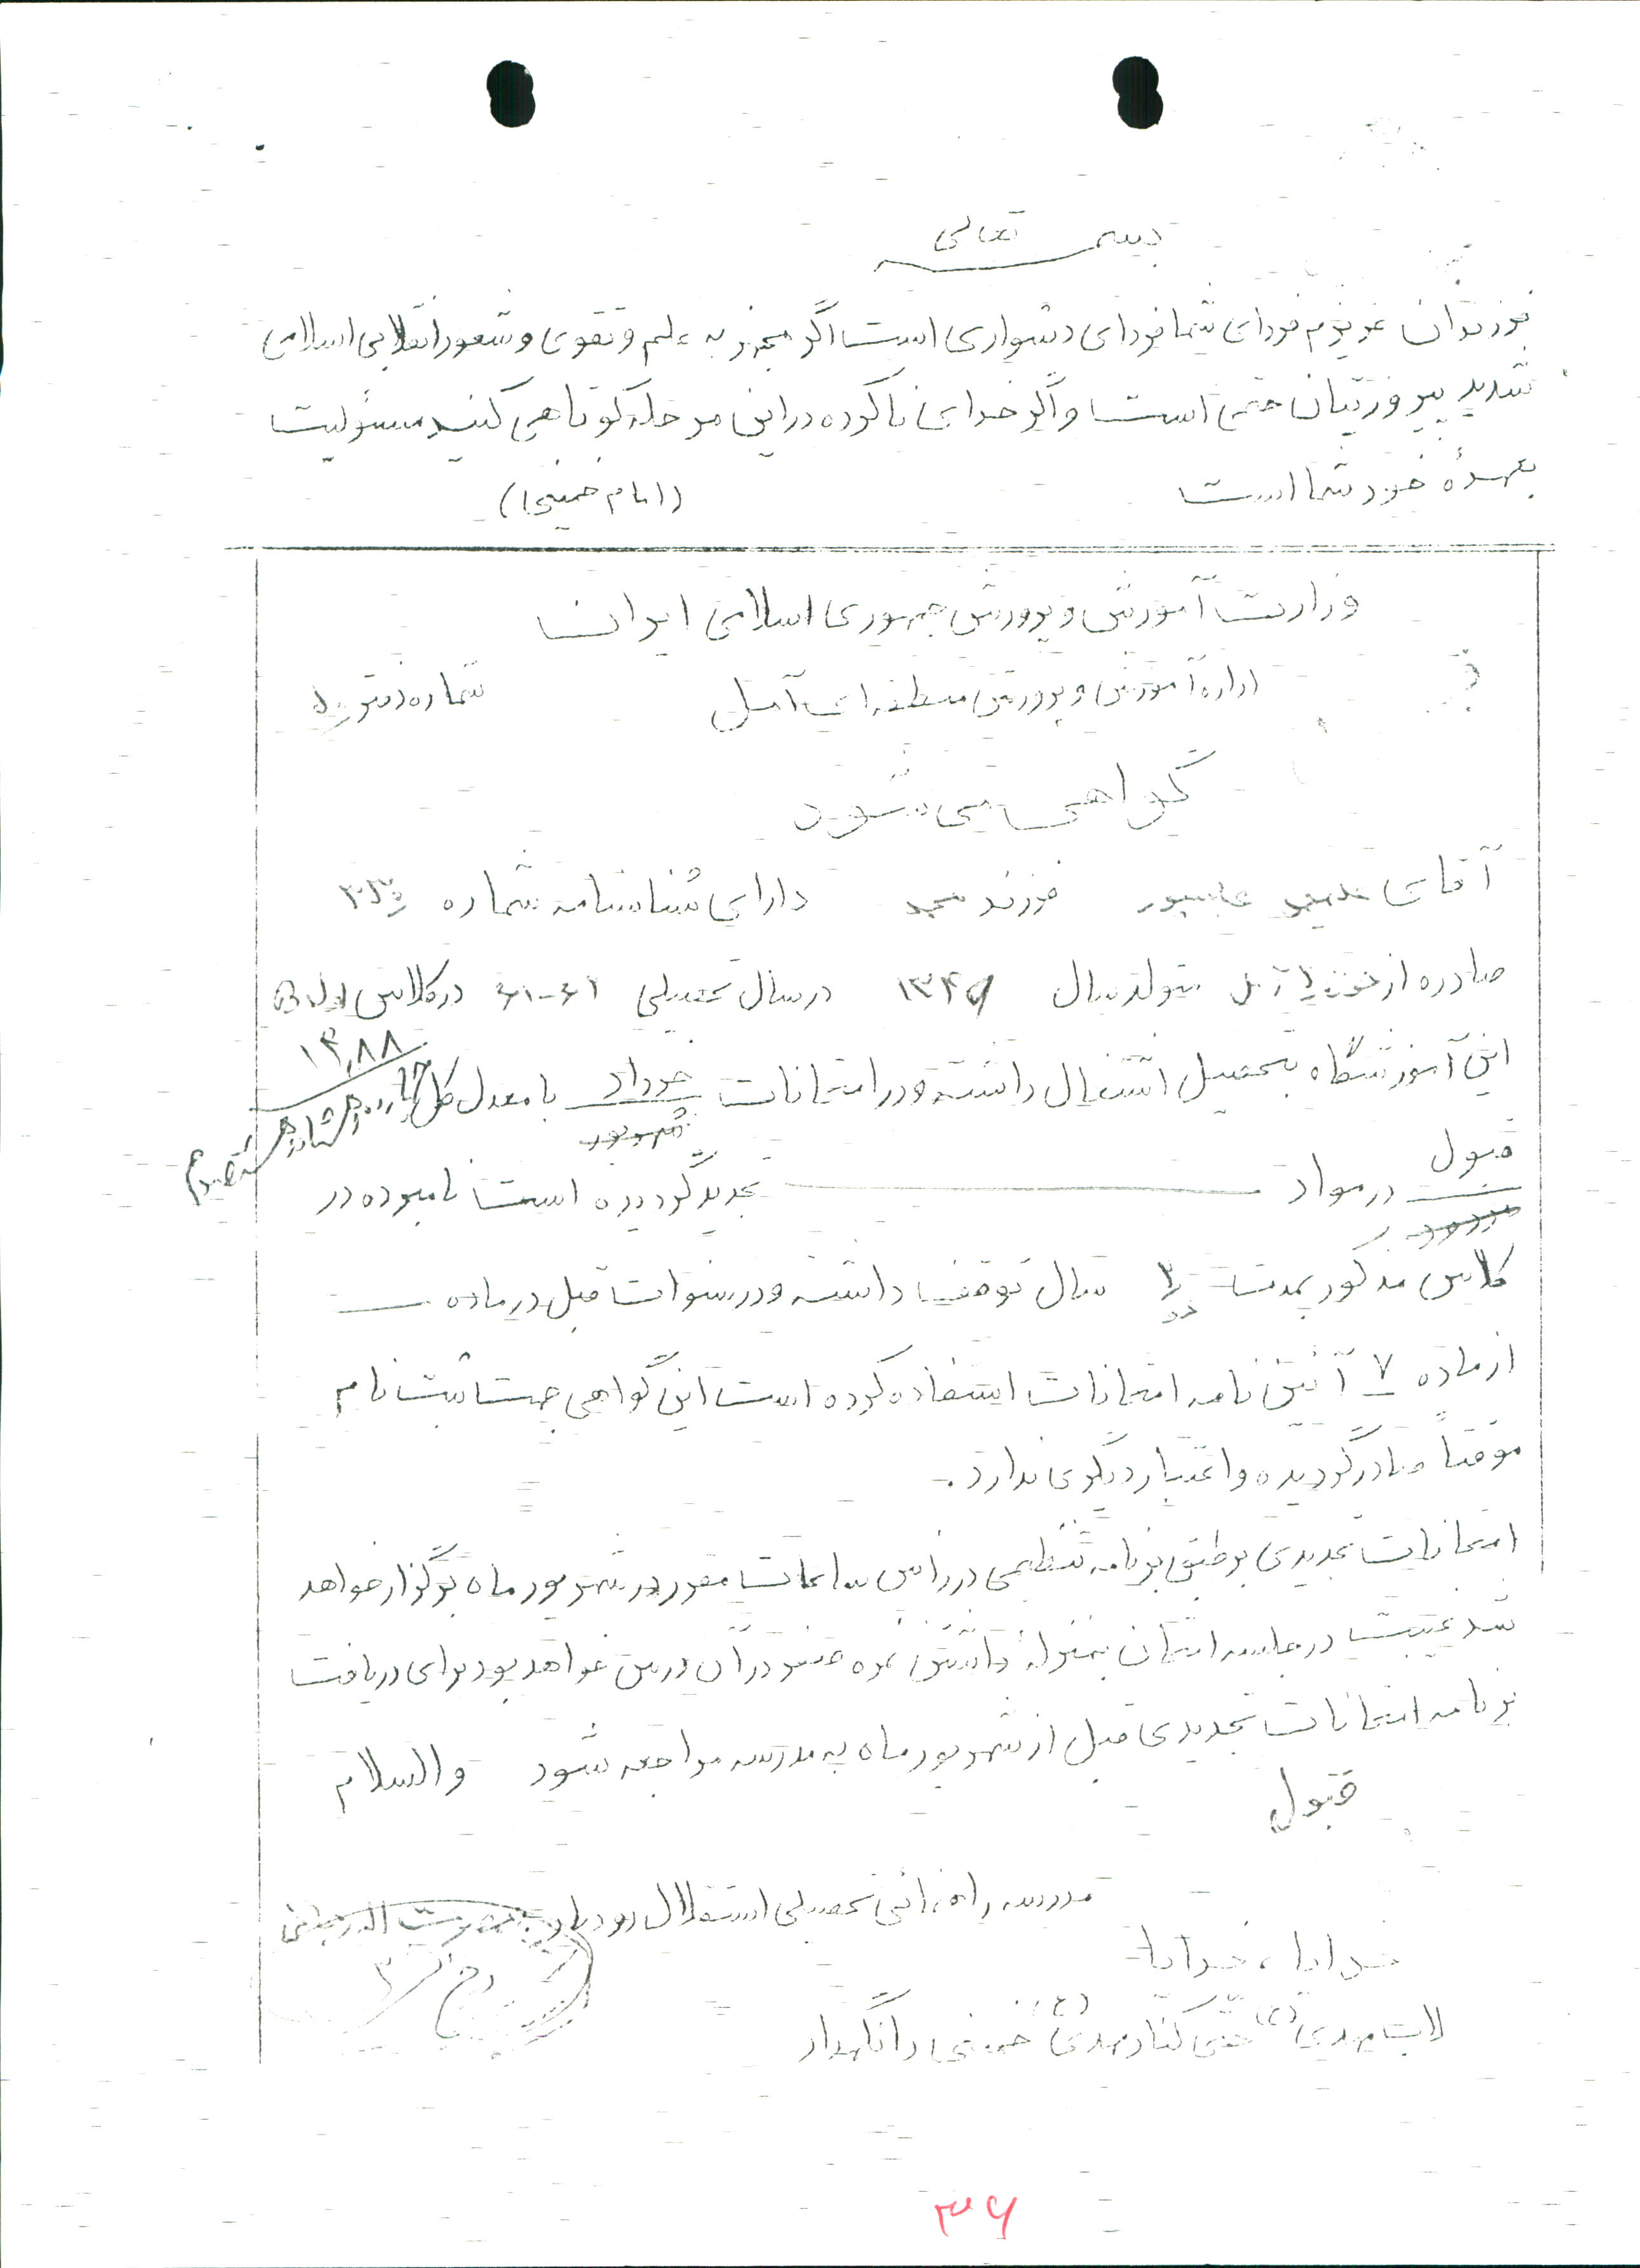 بسمه تعالی
فرزندان عزیزم فردای شما فردای دشواری است اگر مجهز به علم و تقوی و شعور انقلابی اسلامی
شدید پیروزیتان حتمی است و اگر خدای ناکرده در این مرحله کوتاهی کنید مسئولیت
بعهدهٔ خود شما است (امام خمینی)
وزارت آموزش و پرورش جمهوری اسلامی ایران
اداره آموزش و پرورش منطقه ای آمل شماره دفتر
گواهی می شود
آقای فرزند دارای شناسنامه شماره
صادره از متولد سال ۱۳۴۶ در سال تحصیلی ۶۱-۶۲ در کلاس اول
این آموزشگاه بتحصیل اشتغال داشته و در امتحانات خرداد با معدل کل ۱۴٫۸۸
شهریور
قبول در مواد تجدید گردیده است نامبرده در
مردود
کلاس مذکور بمدت سال توقف داشته و در سنوات قبل در ماده
از ماده ۷ آئین نامه امتحانات استفاده کرده است این گواهی جهت ثبت نام
موقتاً صادر گردیده و اعتبار دیگری ندارد .
امتحانات تجدیدی بر طبق برنامه تنظیمی در رأس ساعات مقرر در شهریور ماه برگزار خواهد
شد غیبت در جلسه امتحان بمنزلهٔ داشتن نمره صفر در آن درس خواهد بود برای دریافت
برنامه امتحانات تجدیدی قبل از شهریور ماه به مدرسه مراجعه شود والسلام
قبول
مدرسه راهنمائی تحصیلی استقلال
خدایا ، خدایا
تا انقلاب مهدی (عج) حتی کنار مهدی (عج) خمینی را نگهدار
۳۶